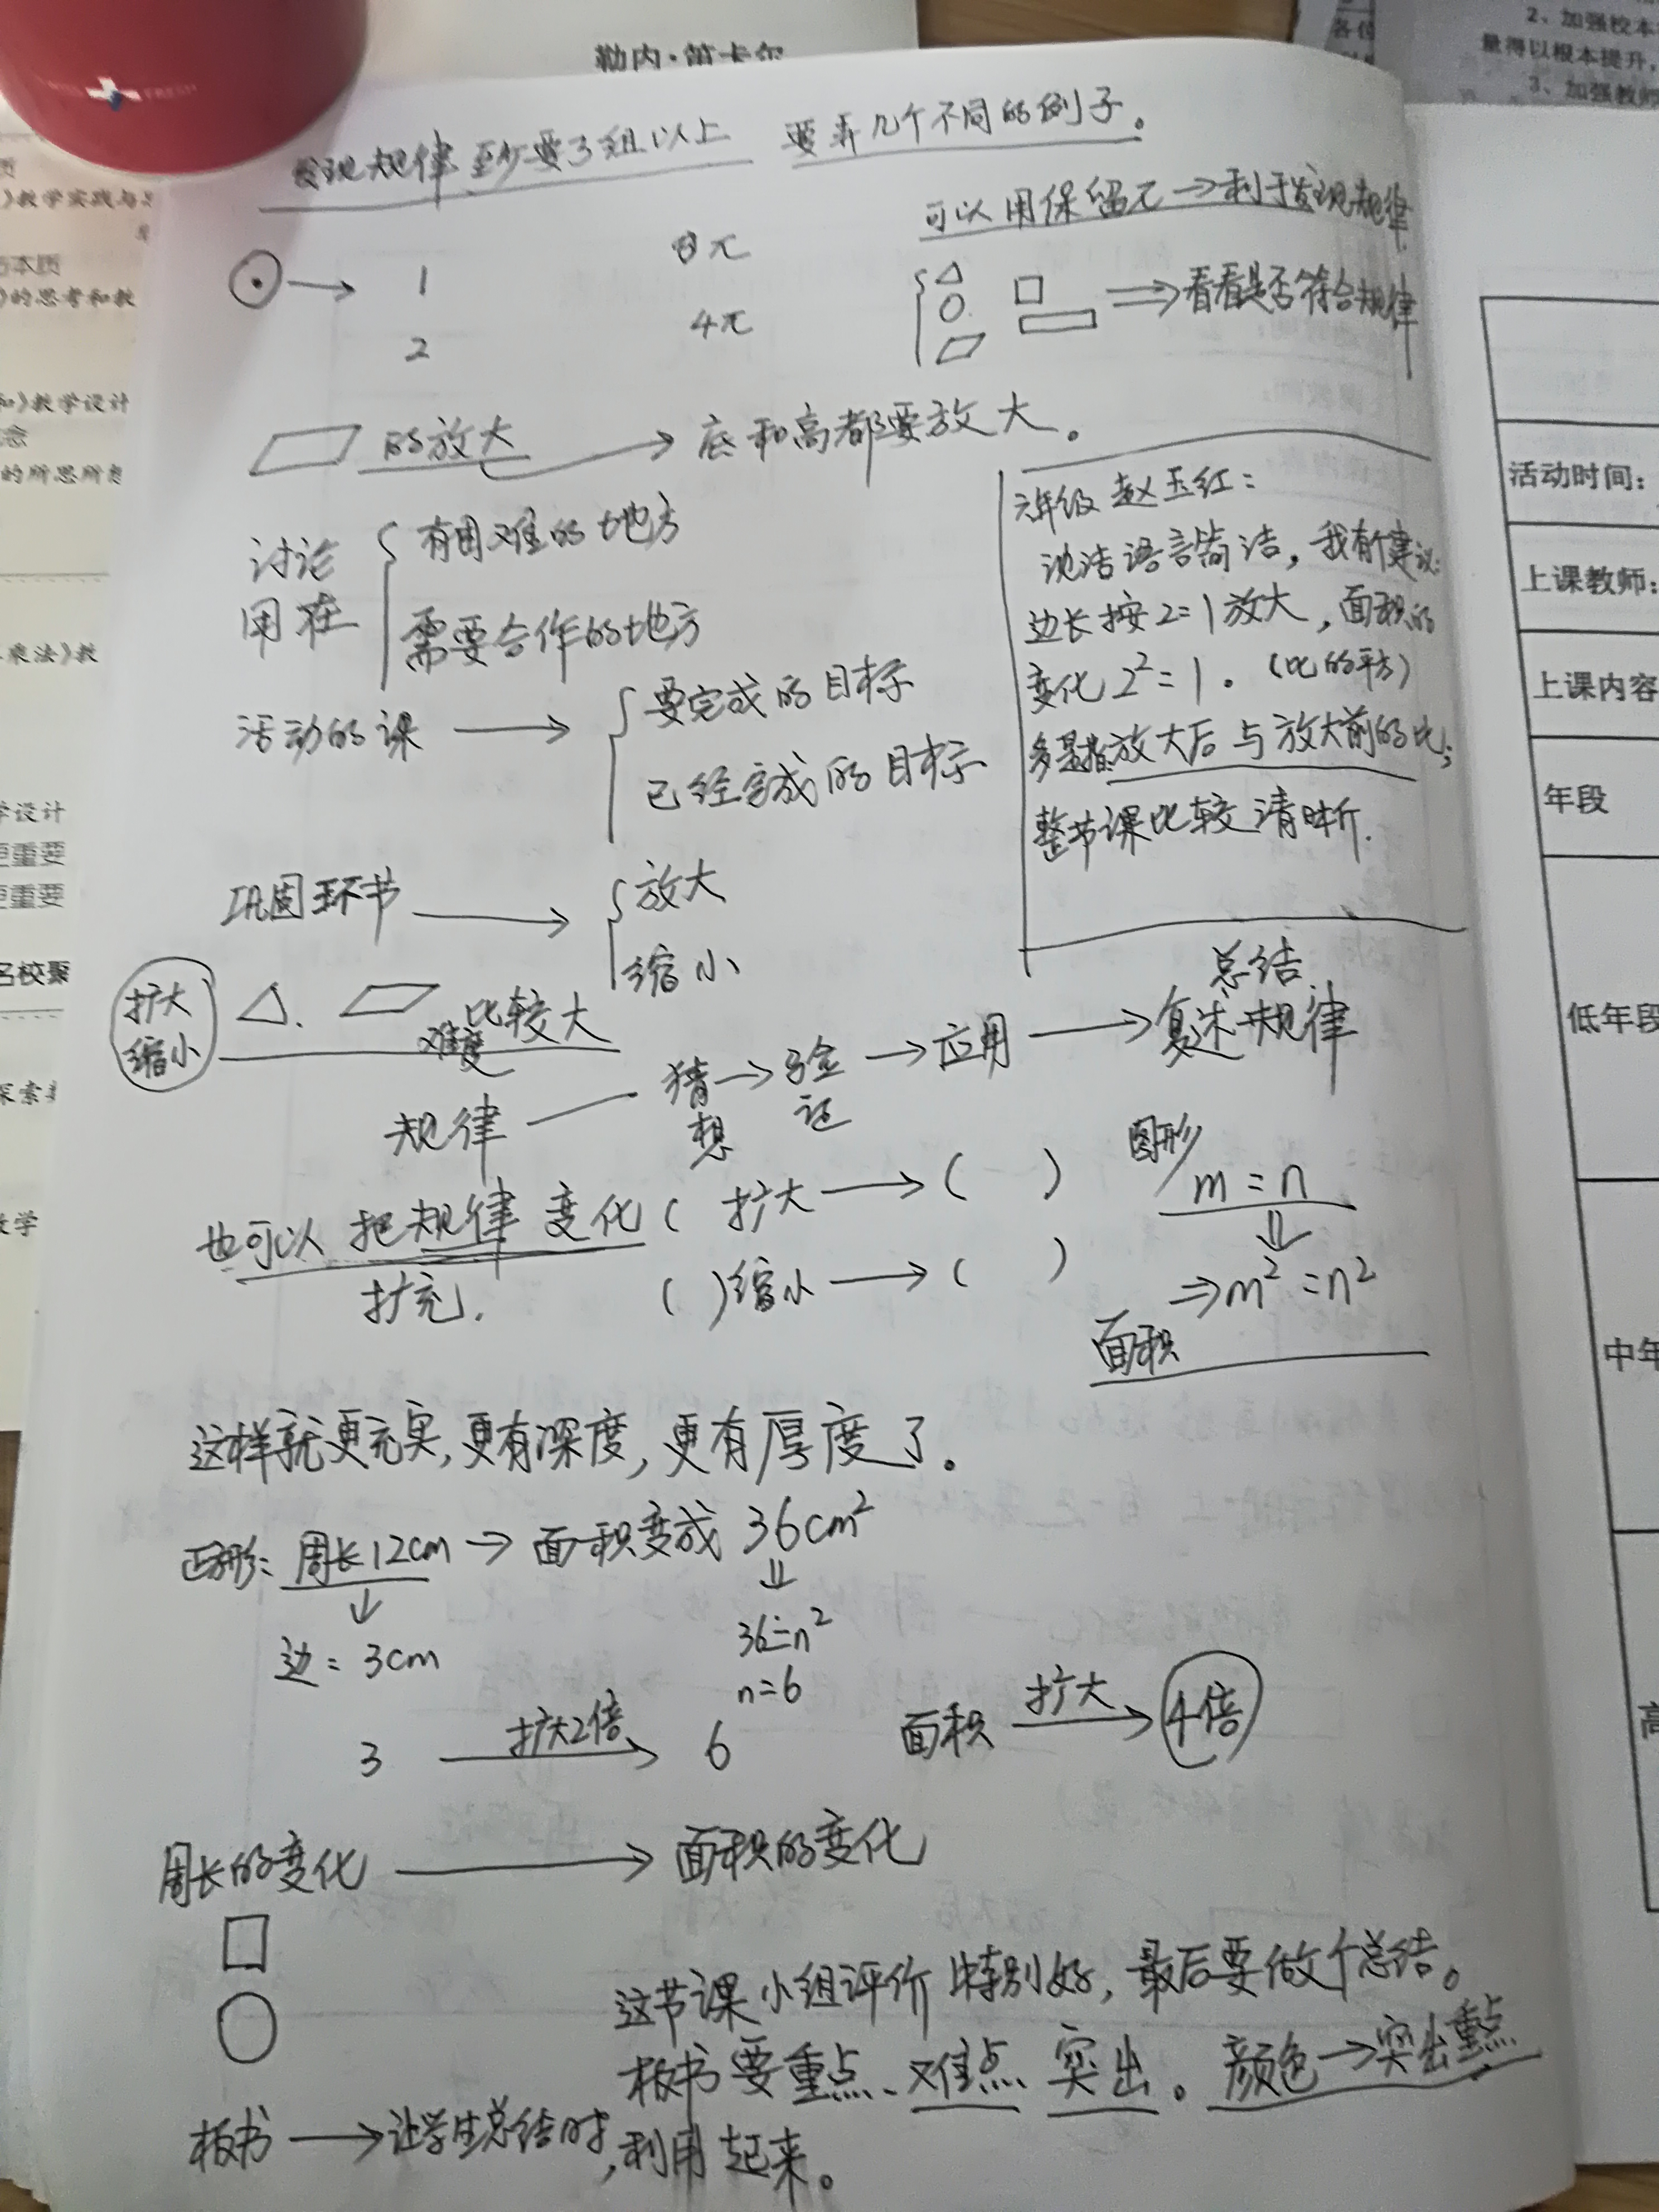 勒内·笛卡尔
2、加强校本
量得以根本提升，
3、加强教师
各位
发现规律至少要3组以上 要弄几个不同的例子。
可以用保留π→利于发现规律
1 π
2 4π
看看是否符合规律
的放大 → 底和高都要放大。
讨论用在
有困难的地方
需要合作的地方
活动的课 →
要完成的目标
已经完成的目标
六年级 赵玉红：
沈洁语言简洁，我有个建议：
边长按2:1放大，面积的
变化2²:1。（比的平方）
多是指放大后与放大前的比；
整节课比较清晰.
巩固环节 →
放大
缩小
扩大
缩小
难度比较大
规律 — 猜想→验证→应用→复述规律
总结
也可以把规律变化（ 扩大→（ ）
扩充. （ ）缩小→（ ）
图形
m:n
⇒m²:n²
面积
这样就更充实，更有深度，更有厚度了。
正方形：周长12cm → 面积变成 36cm²
边：3cm
36=n²
n=6
3 扩大2倍 → 6
面积 扩大 → 4倍
周长的变化 → 面积的变化
这节课小组评价特别好，最后要做个总结。
板书要重点、难点 突出。颜色→突出重点
板书→让学生总结时，利用起来。
活动时间：
上课教师：
上课内容
年段
低年段
中年
高
》教学实践与
本质
》的思考和教
和》教学设计
念
的所思所
乘法》教
学设计
更重要
更重要
名校聚
探索
数学